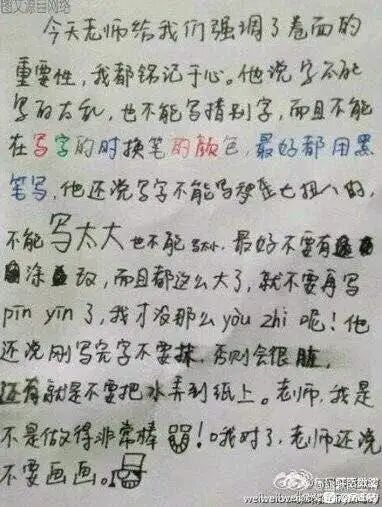 图文源自网络
今天老师给我们强调了卷面的
重要性，我都铭记于心。他说字不能
写的太乱，也不能写错别字，而且不能
在写字的时换笔的颜色，最好都用黑
笔写，他还说写字不能写歪七扭八的，
不能写太大也不能写太小，最好不要有
涂改，而且都这么大了，就不要再写
pīn yīn了，我才没那么you zhi呢！他
还说刚写完字不要抹，否则会很脏，
还有就是不要把水弄到纸上。老师，我是
不是做得非常棒！哦对了，老师还说
不要画画。